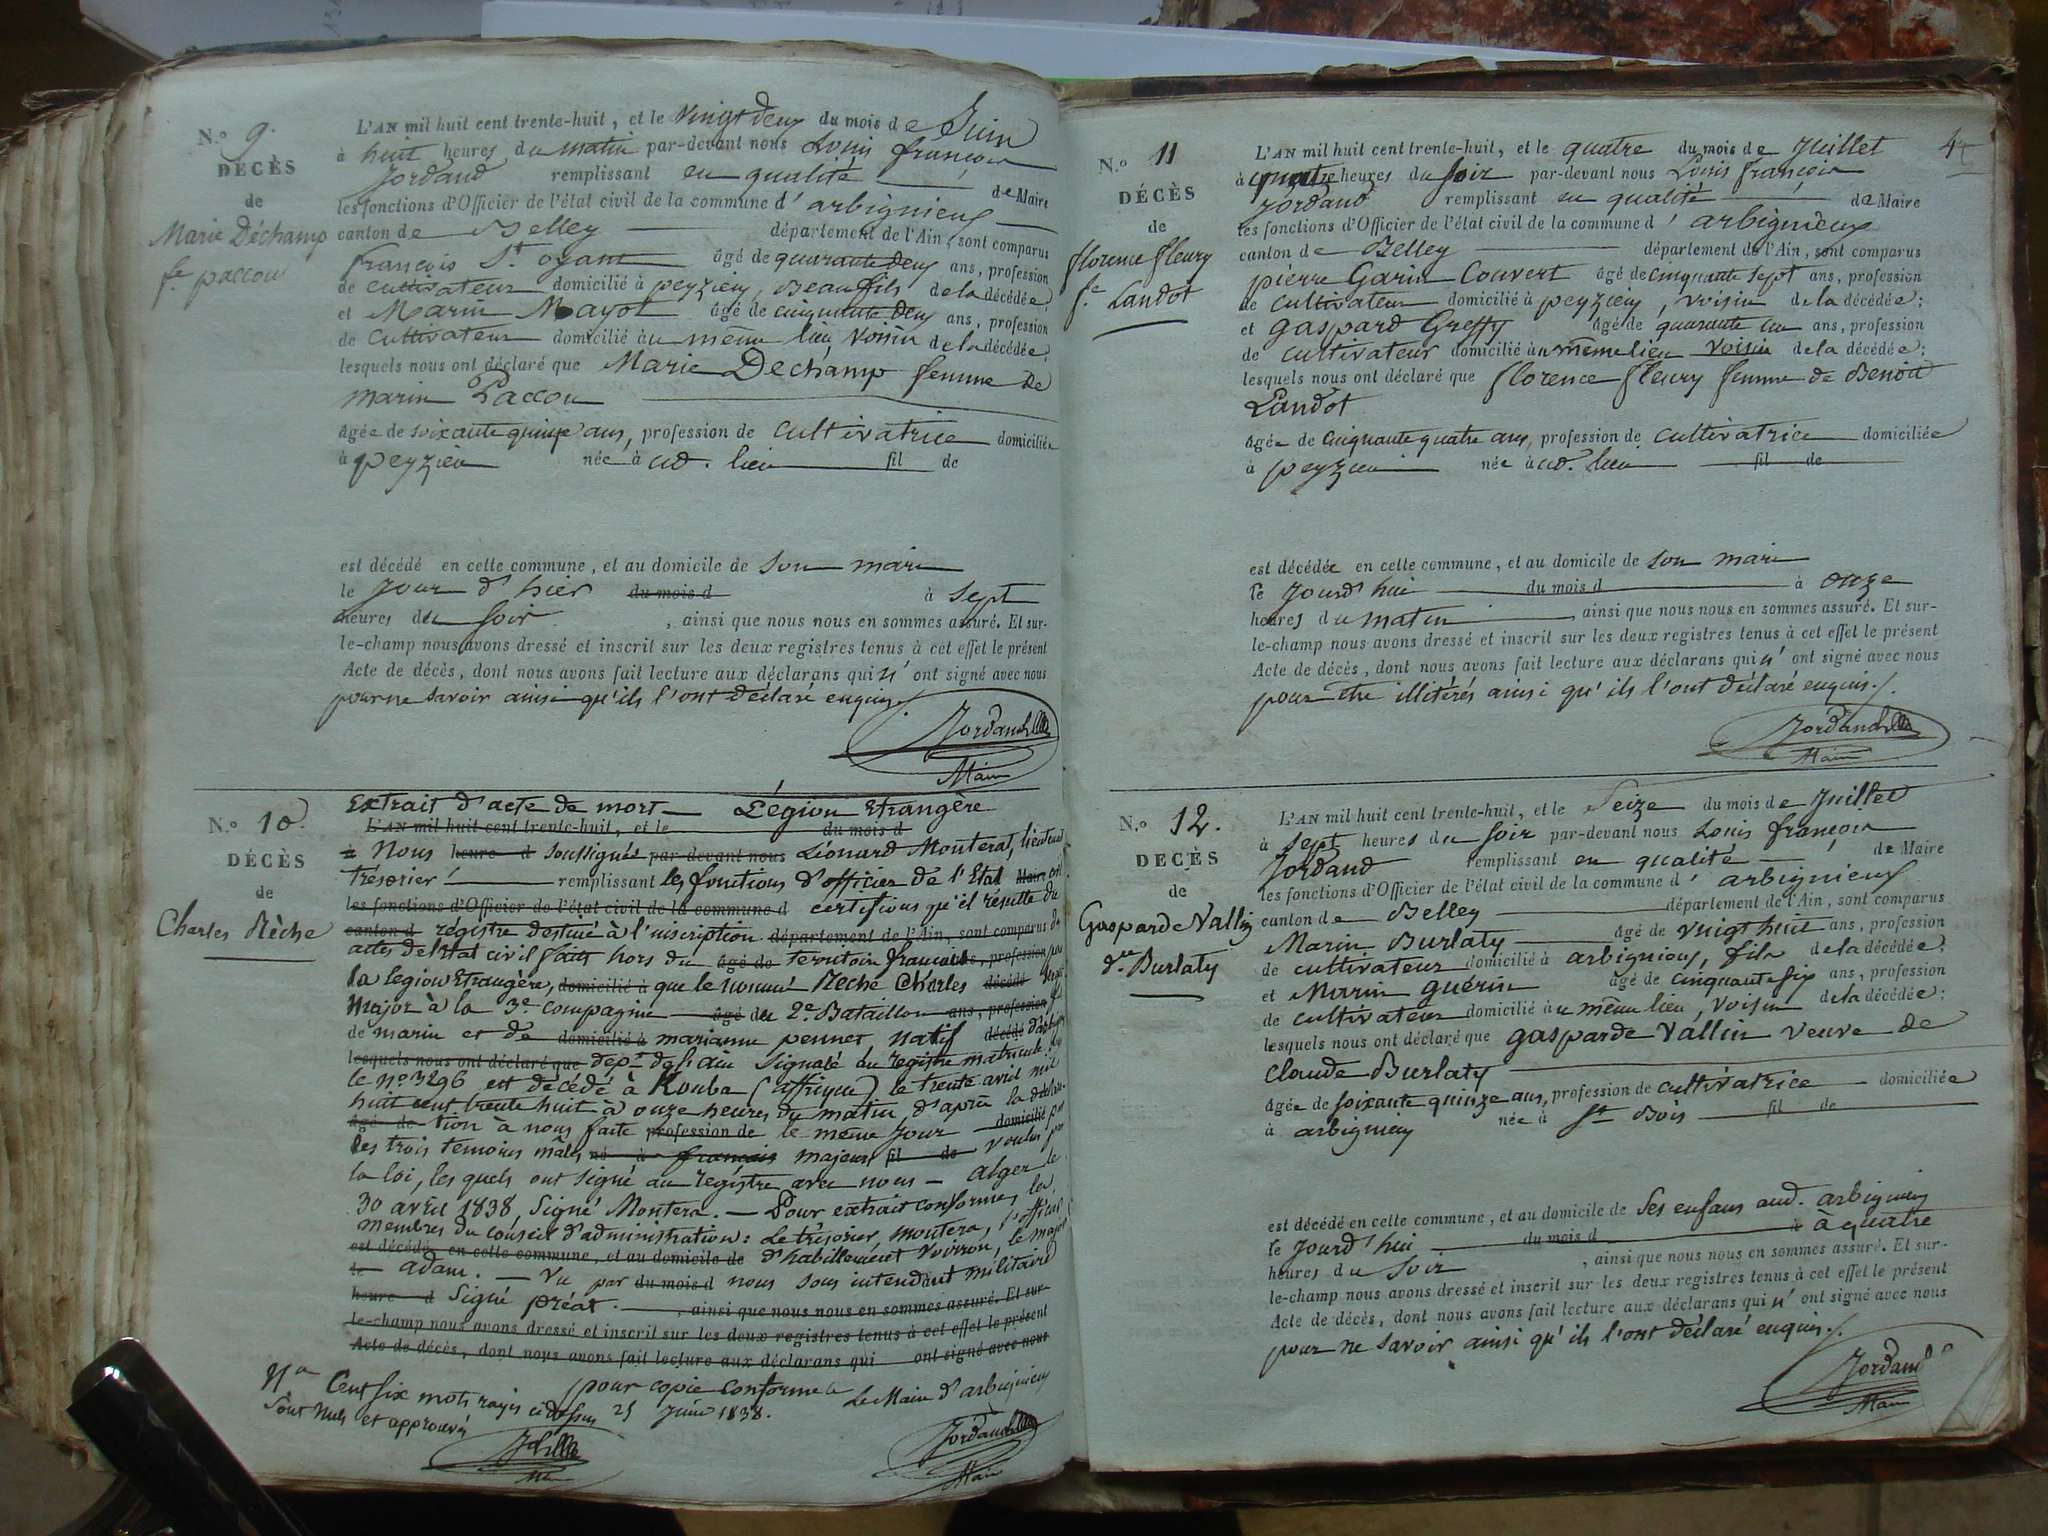 N.º 9.
DÉCÈS
de
Marie Déchamp
fe paccou
L'AN mil huit cent trente-huit, et le vingt deux du mois de Juin
à huit heures du matin par-devant nous Louis françois
Jordand remplissant en qualité de Maire
les fonctions d'Officier de l'état civil de la commune d'arbignieux
canton de Belley département de l'Ain, sont comparus
françois St oyant âgé de quarante deux ans, profession
de cultivateur domicilié à peyzieu, Beaufils de la décédée
et Marin Mayot âgé de cinquante deux ans, profession
de cultivateur domicilié au même lieu, voisin de la décédée;
lesquels nous ont déclaré que Marie Déchamp femme de
marin Paccou
âgée de soixante quinze ans, profession de cultivatrice domiciliée
à peyzieu née à ud. lieu fil de
est décédé en cette commune, et au domicile de son mari
le Jour d'hier du mois d à sept
heures du soir, ainsi que nous nous en sommes assuré. Et sur-
le-champ nous avons dressé et inscrit sur les deux registres tenus à cet effet le présent
Acte de décès, dont nous avons fait lecture aux déclarans qui n'ont signé avec nous
pour ne savoir ainsi qu'ils l'ont déclaré enquis.
Jordand
Maire
N.º 10.
DÉCÈS
de
Charles Rèche
Extrait d'acte de mort — Légion Etrangère
L'AN mil huit cent trente-huit, et le du mois d
à Nous heure d soussignés par-devant nous Léonard Monterat, lieutenant
trésorier remplissant les fonctions d'officier de l'Etat Maire civil
les fonctions d'Officier de l'état civil de la commune d certifions qu'il résulte du
canton d régistre destiné à l'inscription département de l'Ain, sont comparus des
actes de l'Etat civil faits hors du âgé de territoire francais, profession pour
la légion Etrangère, domicilié à que le nommé Rèche Charles décédé
Major à la 3e compagnie âgé de du 2e Bataillon ans, profession
de marin et de domicilié à marianne pennet, natif décédé
lesquels nous ont déclaré que dept de l'ain signalé au registre matricule
le nº 3296 est décédé à Kouba (affrique) le trente avril mil
huit cent trente huit à onze heures du matin, d'après la déclara-
âgé de tion à nous faite profession de le même jour domicilié par
les trois témoins mâles né à francais majeurs fil de voulus par
la loi, les quels ont signé au régistre avec nous — alger le
30 avril 1838, Signé Montera. — Pour extrait conforme, les
membres du conseil d'administration: Le trésorier, montera, l'officier
est décédé en cette commune, et au domicile de d'habillement Voirron, le major
le adam. — Vu par du mois d nous sous intendant militaire
heure d signé préat. , ainsi que nous nous en sommes assuré. Et sur-
le-champ nous avons dressé et inscrit sur les deux registres tenus à cet effet le présent
Acte de décès, dont nous avons fait lecture aux déclarans qui ont signé avec nous
pour copie conforme
Cent six mots rayés ci dessus 25 Juin 1838. Le Maire d'arbignieux
sont nuls et approuvés
Jordand
Maire
44
N.º 11
DÉCÈS
de
florence fleury
fe Landot
L'AN mil huit cent trente-huit, et le quatre du mois de Juillet
à quatre heures du soir par-devant nous Louis françois
Jordand remplissant en qualité de Maire
les fonctions d'Officier de l'état civil de la commune d'arbignieux
canton de Belley département de l'Ain, sont comparus
pierre Garin Couvert âgé de cinquante sept ans, profession
de cultivateur domicilié à peyzieu, voisin de la décédée;
et gaspard Greffy âgé de quarante un ans, profession
de cultivateur domicilié au même lieu voisin de la décédée;
lesquels nous ont déclaré que florence fleury femme de Benoit
Landot
âgée de cinquante quatre ans, profession de cultivatrice domiciliée
à peyzieu née à ud. lieu fil de
est décédée en cette commune, et au domicile de son mari
le Jourd'hui du mois d à onze
heures du matin, ainsi que nous nous en sommes assuré. Et sur-
le-champ nous avons dressé et inscrit sur les deux registres tenus à cet effet le présent
Acte de décès, dont nous avons fait lecture aux déclarans qui n'ont signé avec nous
pour être illitérés ainsi qu'ils l'ont déclaré enquis./.
Jordand
Maire
N.º 12.
DÉCÈS
de
Gasparde Vallin
ve Burlaty
L'AN mil huit cent trente-huit, et le Seize du mois de Juillet
à sept heures du soir par-devant nous Louis françois
Jordand remplissant en qualité de Maire
les fonctions d'Officier de l'état civil de la commune d'arbignieux
canton de Belley département de l'Ain, sont comparus
Marin Burlaty âgé de vingt huit ans, profession
de cultivateur domicilié à arbignieux, fils de la décédée,
et Marin guérin âgé de cinquante six ans, profession
de cultivateur domicilié au même lieu, voisin de la décédée;
lesquels nous ont déclaré que gasparde Vallin veuve de
claude Burlaty
âgée de soixante quinze ans, profession de cultivatrice domiciliée
à arbignieu née à St Bois fil de
est décédé en cette commune, et au domicile de ses enfans aud. arbignieu
le Jourd'hui du mois d à à quatre
heures du soir, ainsi que nous nous en sommes assuré. Et sur-
le-champ nous avons dressé et inscrit sur les deux registres tenus à cet effet le présent
Acte de décès, dont nous avons fait lecture aux déclarans qui n'ont signé avec nous
pour ne savoir ainsi qu'ils l'ont déclaré enquis./.
Jordand
Maire